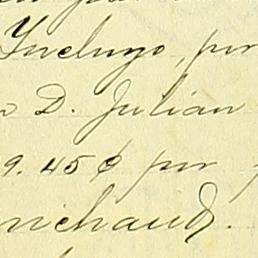 Incluyo, por
D. Julian
9.45¢ por
nichaud.